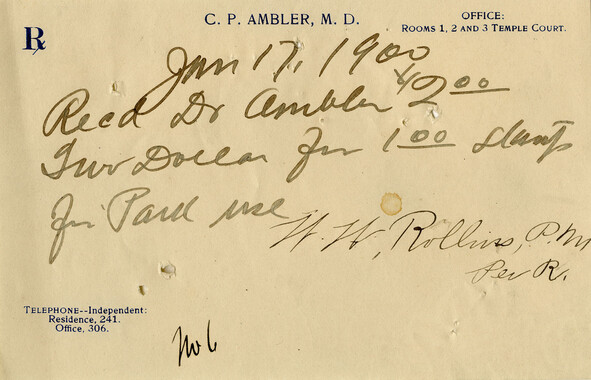 Rx
C. P. AMBLER, M. D.
OFFICE:
ROOMS 1, 2 AND 3 TEMPLE COURT.
Jan 17, 1900
Recd Dr Ambler $2.00
Two Dollar for 100 stamps
for Park use
W. W. Rollins, P.M
Per R.
TELEPHONE--Independent:
Residence, 241.
Office, 306.
No 6